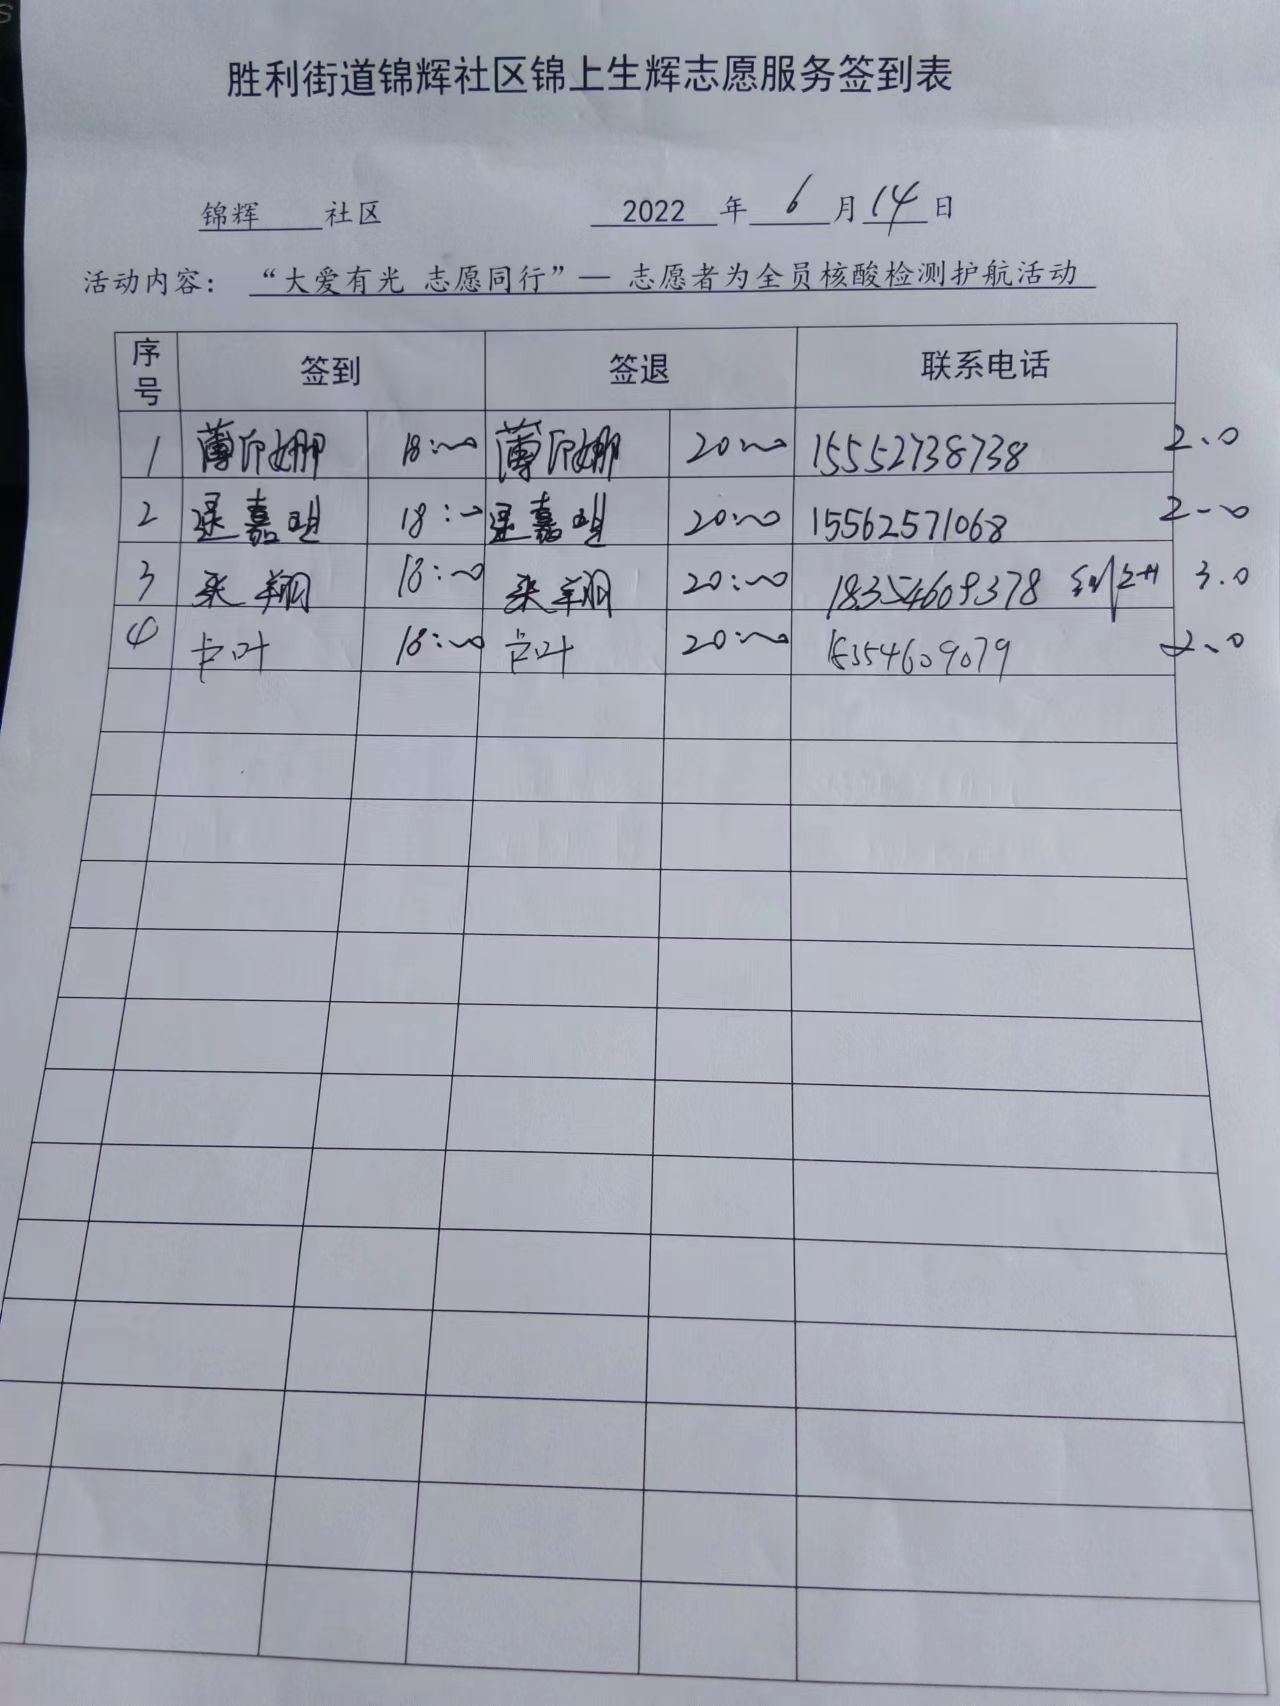 胜利街道锦辉社区锦上生辉志愿服务签到表
锦辉 社区 2022 年 6 月 14 日
活动内容： “大爱有光 志愿同行”— 志愿者为全员核酸检测护航活动
序号 签到 签退 联系电话
1 薄 娜 18:00 薄 娜 20:00 15552738738 2.0
2 嘉 18:00 嘉 20:00 15562571068 2.0
3 张翔 18:00 张翔 20:00 18354609378 3.0
4 卡叶 18:00 卡叶 20:00 18354609079 2.0